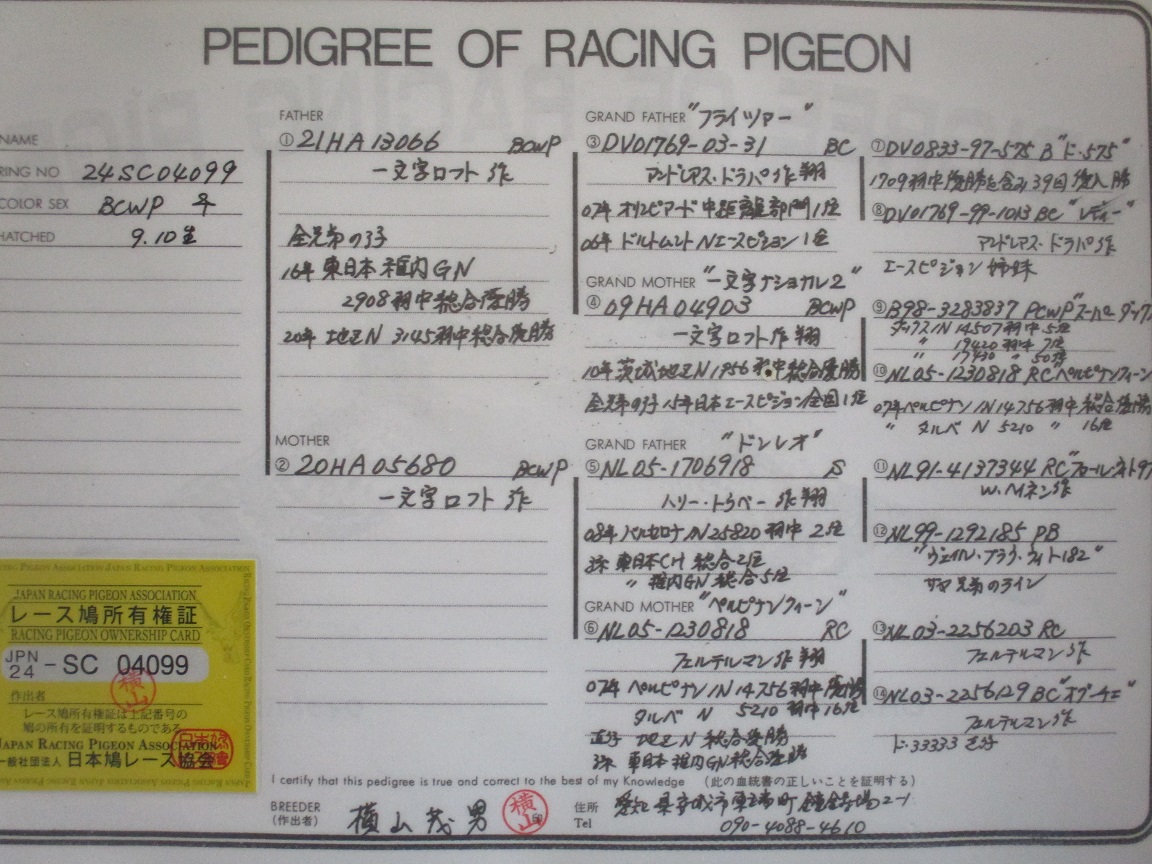 PEDIGREE OF RACING PIGEON
NAME
RING NO 24SC04099
COLOR SEX BCWP ♀
HATCHED 9.10生
FATHER
①21HA13066 BCWP
一文字ロフト作
全兄弟の子
16年東日本稚内GN
2908羽中総合優勝
20年 地区N 3145羽中総合優勝
MOTHER
②20HA05680 BCWP
一文字ロフト作
GRAND FATHER "フライツァー"
③DV01769-03-31 BC
アンドレアス・ドラパ作翔
07年オリンピアード中距離部門1位
06年ドルトムントNエースピジョン1位
GRAND MOTHER "一文字ナショナル2"
④09HA04903 BCWP
一文字ロフト作翔
10年茨城地区N1956羽中総合優勝
全兄弟の子15年日本エースピジョン全国1位
GRAND FATHER "ドンレオ"
⑤NL05-1706918 S
ハリー・トゥベー作翔
08年バルセロナIN25820羽中2位
孫 東日本CH総合2位
〃 稚内GN総合5位
GRAND MOTHER "ペルピナンクィーン"
⑥NL05-1230818 RC
フェルテルマン作翔
07年ペルピナンIN14756羽中優勝
タルベ N 5210羽中16位
直仔 地区N 総合優勝
孫 東日本稚内GN総合優勝
⑦DV0833-97-575 B "ド・575"
1709羽中優勝を含み39回優入勝
⑧DV01769-99-1013 BC "レディー"
アンドレアス・ドラパ作
エースピジョン姉妹
⑨B98-3283837 PCWP "スーパーダックス
ダックスIN14507羽中5位
〃 19420羽中7位
〃 17930 〃 50位
⑩NL05-1230818 RC "ペルピナンクィーン
07年ペルピナンIN14756羽中総合優勝
〃 タルベ N 5210 〃 16位
⑪NL91-4137344 RC
W.Mネン作
⑫NL99-1292185 PB
兄弟のライン
⑬NL03-2256203 RC
フェルテルマン作
⑭NL03-2256129 BC "オブーチェ"
フェルテルマン作
ド・33333直仔
JAPAN RACING PIGEON ASSOCIATION
レース鳩所有権証
RACING PIGEON OWNERSHIP CARD
JPN 24 - SC 04099
作出者
横山
レース鳩所有権証は上記番号の
鳩の所有を証明するものである
JAPAN RACING PIGEON ASSOCIATION
一般社団法人 日本鳩レース協会
I certify that this pedigree is true and correct to the best of my Knowledge (此の血統書の正しいことを証明する)
BREEDER (作出者) 横山茂男 横山印
住所 愛知県安城市東端町鐘鋳場2-1
Tel 090-4088-4610